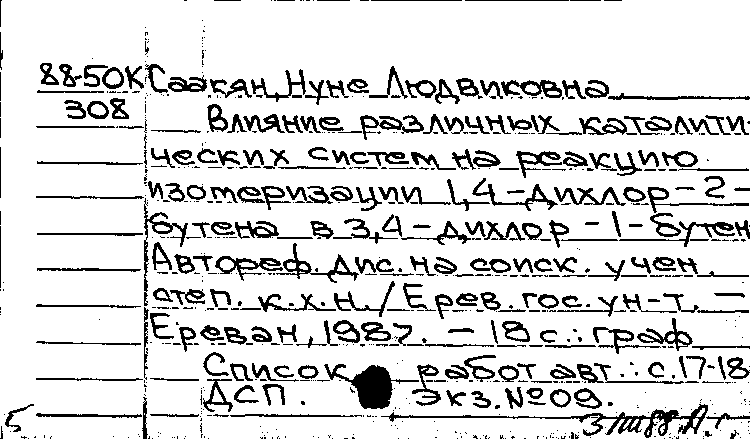 88-50К Саакян, Нуне Людвиковна.
308 Влияние различных каталити-
ческих систем на реакцию
изомеризации 1,4-дихлор-2-
бутена в 3,4-дихлор-1-бутен
Автореф. дис. на соиск. учен.
степ. к.х.н. / Ерев. гос. ун-т. —
Ереван, 1987. — 18 с.: граф.
Список работ авт.: с. 17-18
ДСП. Экз. №09.
5